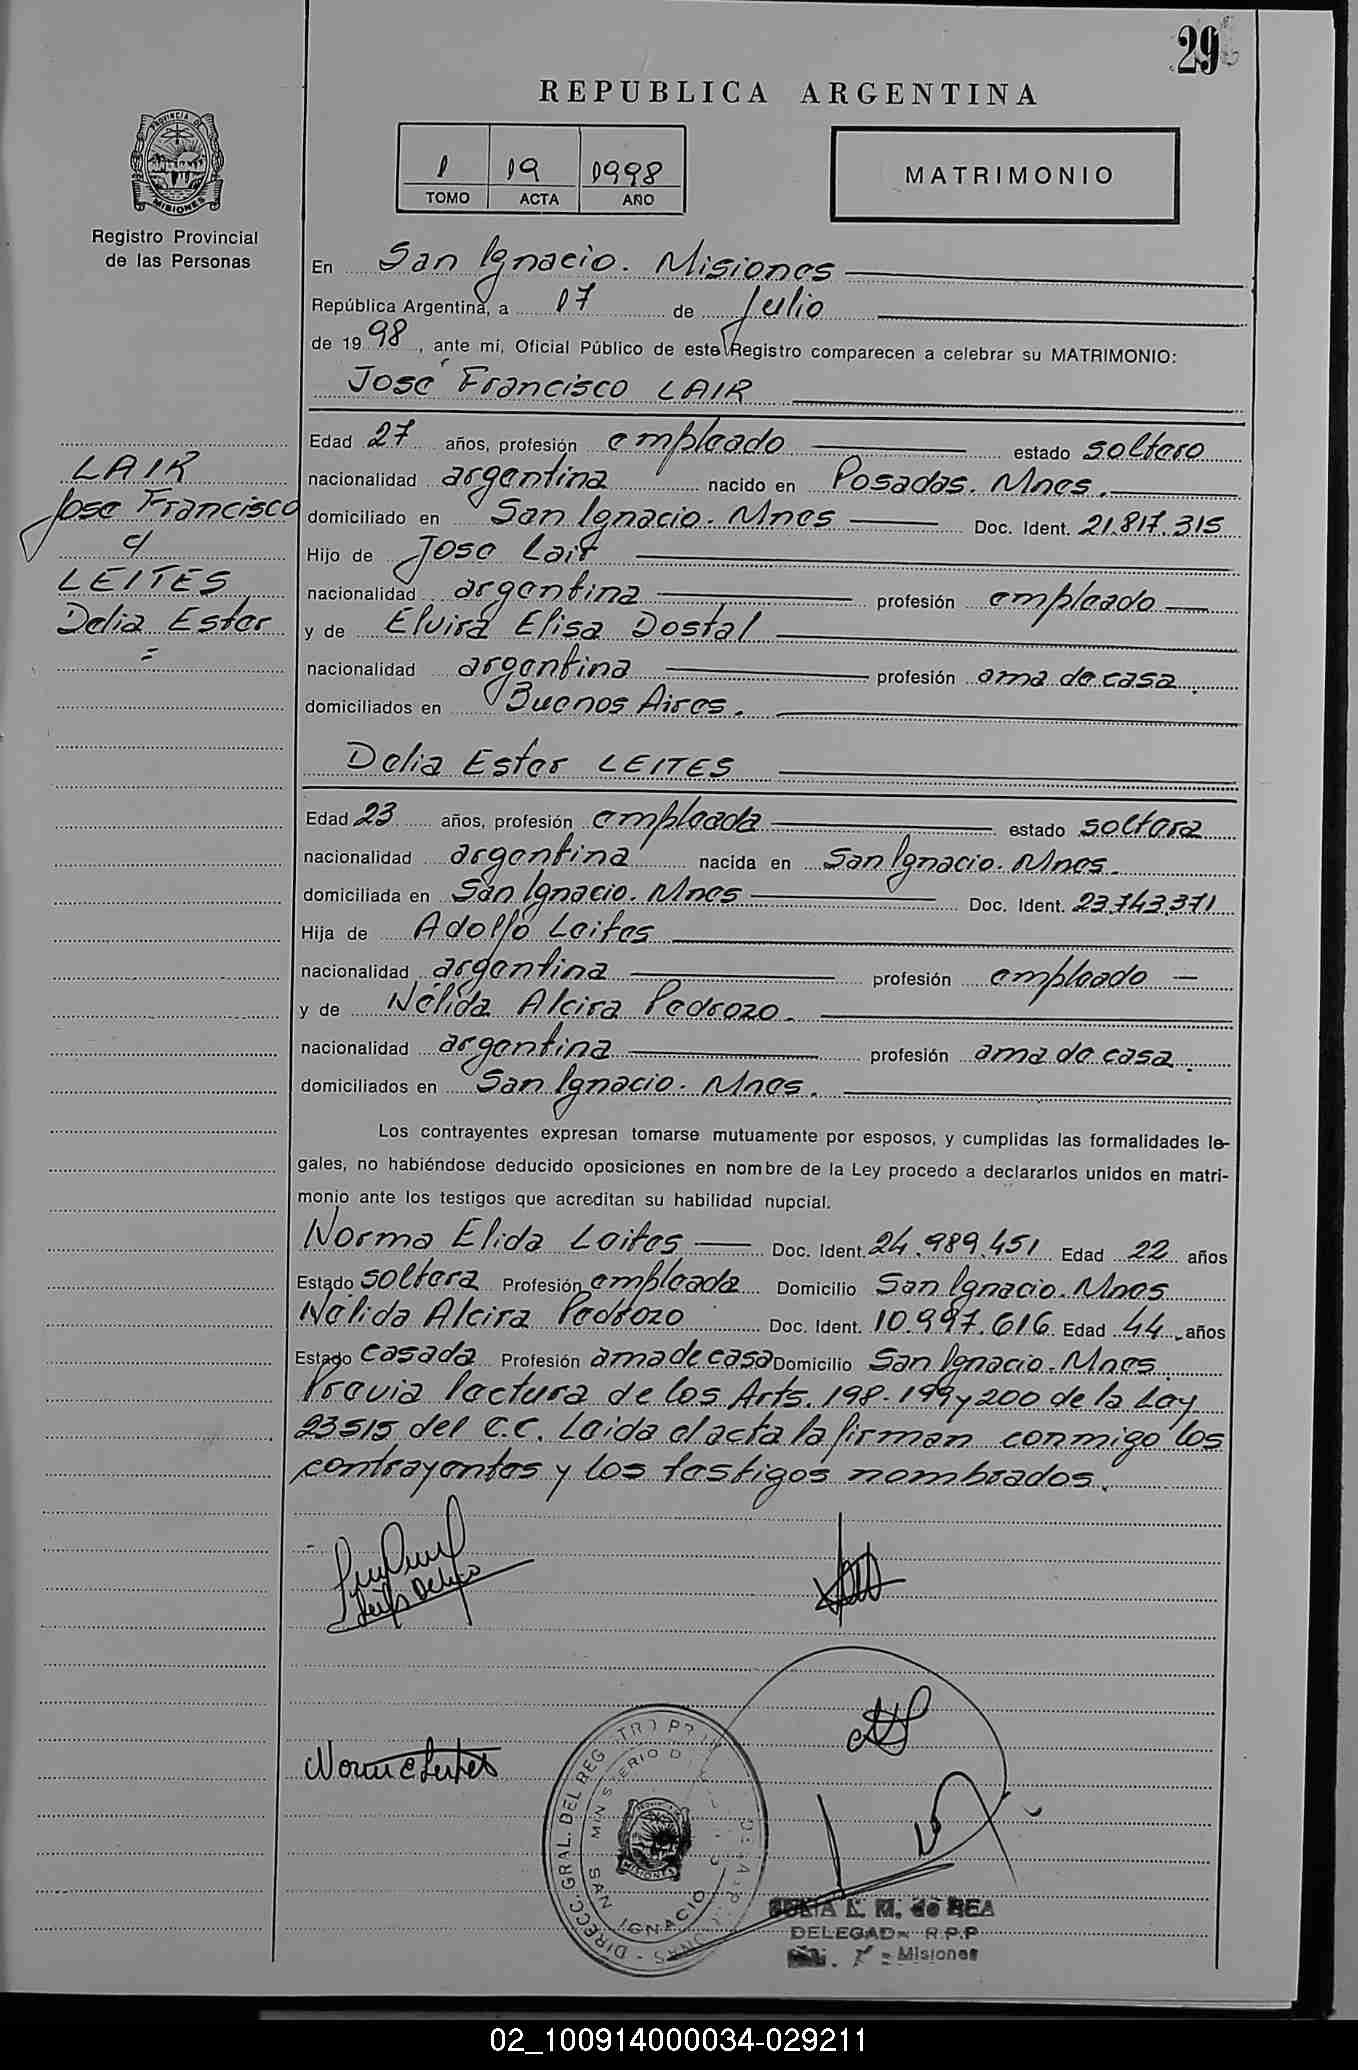 29
REPUBLICA ARGENTINA
1 19 1998
TOMO ACTA AÑO
MATRIMONIO
PROVINCIA DE
MISIONES
Registro Provincial
de las Personas
En San Ignacio. Misiones
República Argentina, a 17 de Julio
de 1998, ante mí, Oficial Público de este Registro comparecen a celebrar su MATRIMONIO:
José Francisco LAIR
Edad 27 años, profesión empleado estado soltero
nacionalidad argentina nacido en Posadas. Mnes.
domiciliado en San Ignacio. Mnes Doc. Ident. 21.817.315
Hijo de Jose Lair
nacionalidad argentina profesión empleado
y de Elvira Elisa Dostal
nacionalidad argentina profesión ama de casa.
domiciliados en Buenos Aires.
LAIR
Jose Francisco
c/
LEITES
Delia Ester
=
Delia Ester LEITES
Edad 23 años, profesión empleada estado soltera
nacionalidad argentina nacida en San Ignacio. Mnes.
domiciliada en San Ignacio. Mnes Doc. Ident. 23.743.371
Hija de Adolfo Leites
nacionalidad argentina profesión empleado
y de Nélida Alcira Pedrozo.
nacionalidad argentina profesión ama de casa.
domiciliados en San Ignacio. Mnes.
Los contrayentes expresan tomarse mutuamente por esposos, y cumplidas las formalidades le-
gales, no habiéndose deducido oposiciones en nombre de la Ley procedo a declararlos unidos en matri-
monio ante los testigos que acreditan su habilidad nupcial.
Norma Elida Leites Doc. Ident. 24.989.451 Edad 22 años
Estado soltera Profesión empleada Domicilio San Ignacio. Mnes
Nélida Alcira Pedrozo Doc. Ident. 10.997.616 Edad 44 años
Estado casada Profesión ama de casa Domicilio San Ignacio. Mnes.
Previa lectura de los Arts. 198-199 y 200 de la Ley
23515 del C.C. Leida el acta la firman conmigo los
contrayentes y los testigos nombrados.
DIRECC. GRAL. DEL REG
MINISTERIO D
SAN IGNACIO
MISIONES
L. M. de REA
DELEGADA R.P.P
Misiones
02_100914000034-029211